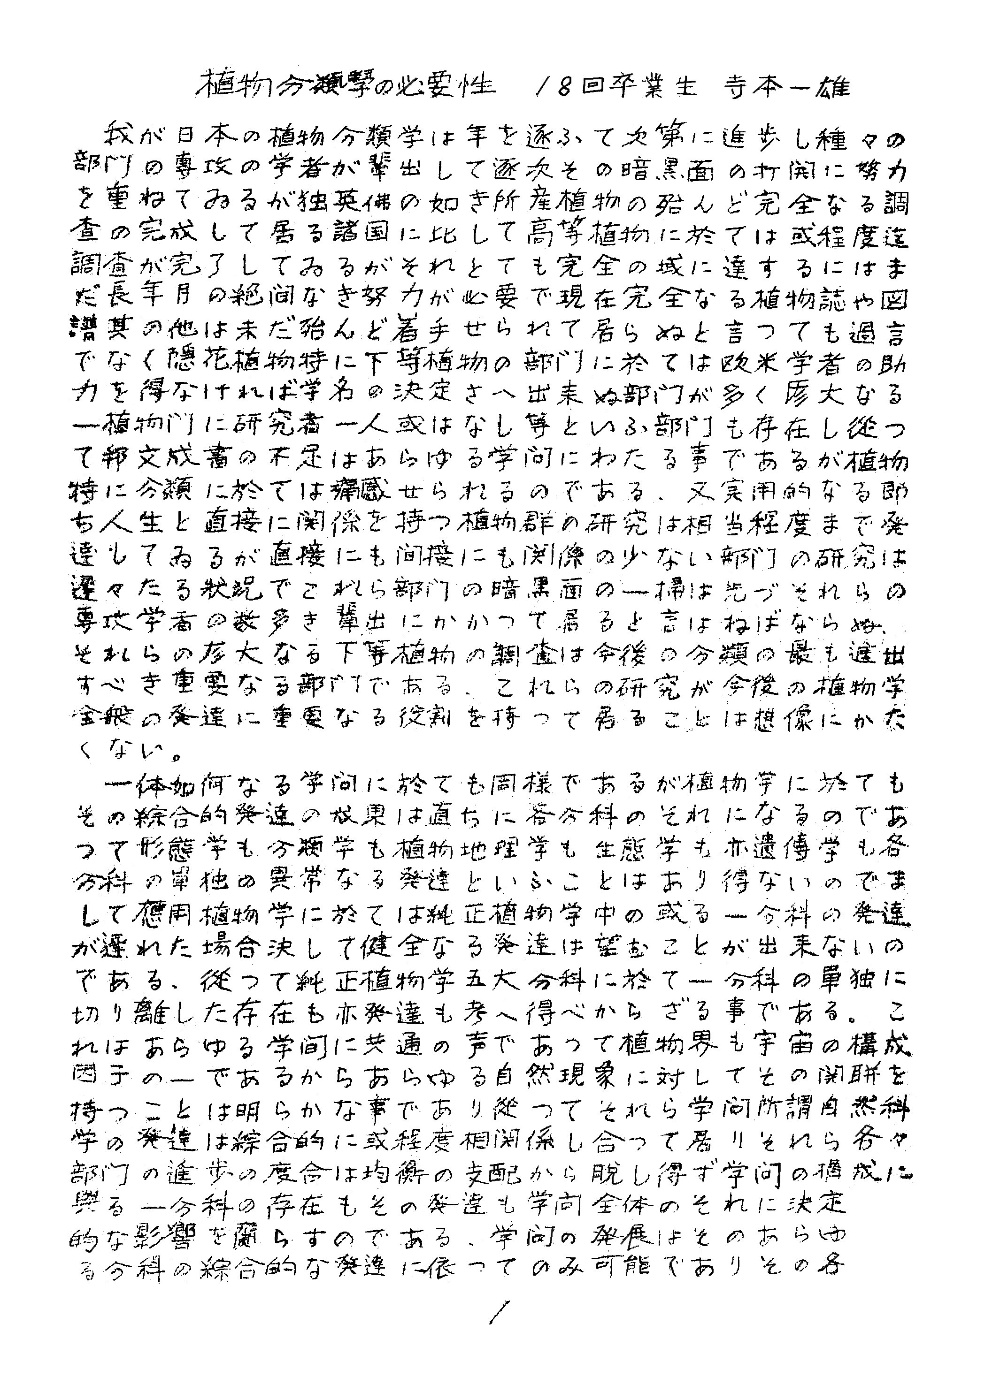 植物分類學の必要性　18回卒業生　寺本一雄
我が日本の植物分類学は年を逐ふて次第に進歩し種々の
部門の専攻の学者が輩出して逐次その暗黒面の打開に努力
を重ねてゐるが独英佛の如き所産植物の殆んど完全なる調
査の完成して居る諸国に比して高等植物に於ては或程度迄
調査が完了してゐるがそれとても完全の域に達するにはま
だ長年月の絶間なき努力が必要で現在完全なる植物誌や図
譜其の他は未だ殆んど着手せられて居らぬと言つても過言
でなく隠花植物特に下等植物の部門に於ては欧米学者の助
力を得なければ学名の決定さへ出来ぬ部門が多く厖大なる
一植物門に研究者一人或はなし等といふ部門も存在し從つ
て邦文成書の不足はあらゆる学問にわたる事であるが植物
特に分類に於ては痛感せられるのである、又実用的なる即
ち人生と直接に関係を持つ植物群の研究は相当程度まで発
達してゐるが直接にも間接にも関係の少ない部門の研究は
遅々たる状況でこれら部門の暗黒面の一掃は先づそれらの
専攻学者の数多き輩出にかかつて居ると言はねばならぬ、
それらの厖大なる下等植物の調査は今後の分類の最も進出
すべき重要なる部門である、これらの研究が今後の植物学
全般の発達に重要なる役割を持つて居ることは想像にかた
くない。
一体如何なる学問に於ても同様であるが植物学に於ても
その綜合的発達の效果は直ちに各分科のそれになるのであ
つて形態学も分類学も植物地理学も生態学も亦遺傳学も各
分科の單独の異常なる発達といふことはあり得ないのでま
して應用植物学に於ては純正植物学中の或る一分科の発達
が遅れた場合決して健全なる発達は望むことが出来ないの
である、從つて純正植物学五大分科に於て一分科の單独に
切り離した存在も亦発達も考へ得べからざる事である。こ
れはあらゆる学間に共通の声であつて植物界も宇宙の構成
因子の一であるからあらゆる自然現象に対してその関聨を
持つことは明らかな事であり從つてそれら学問所謂自然科
学の発達は綜合的に或程度相関係し合つて居りそれら各々
部門の進歩の度合は均衡の支配から脱し得ず学問の構成に
與る一分科の存在もその発達も学問全体のそれに決定
的な影響を齎らすのである、学問の発展はそのあらゆ
る分科の綜合的な発達に依つてのみ可能でありその各
1